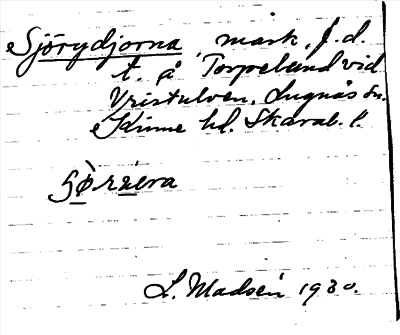 Sjörydjorna mask. f. d.
t. å Torpelund vid
Vristulven. Lugnås sn.
Kinne hd. Skarab. l.
L. Madsén 1930.